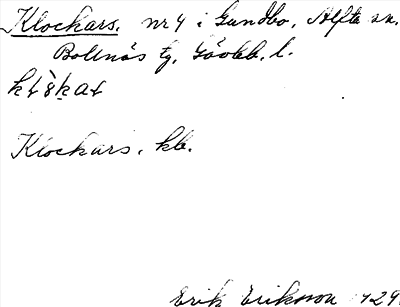 Klockars. nr 4 i Gundbo, Alfta sn.
Bollnäs tg, Gävleb. l.
Klockars. kb.
Erik Erikson 1929